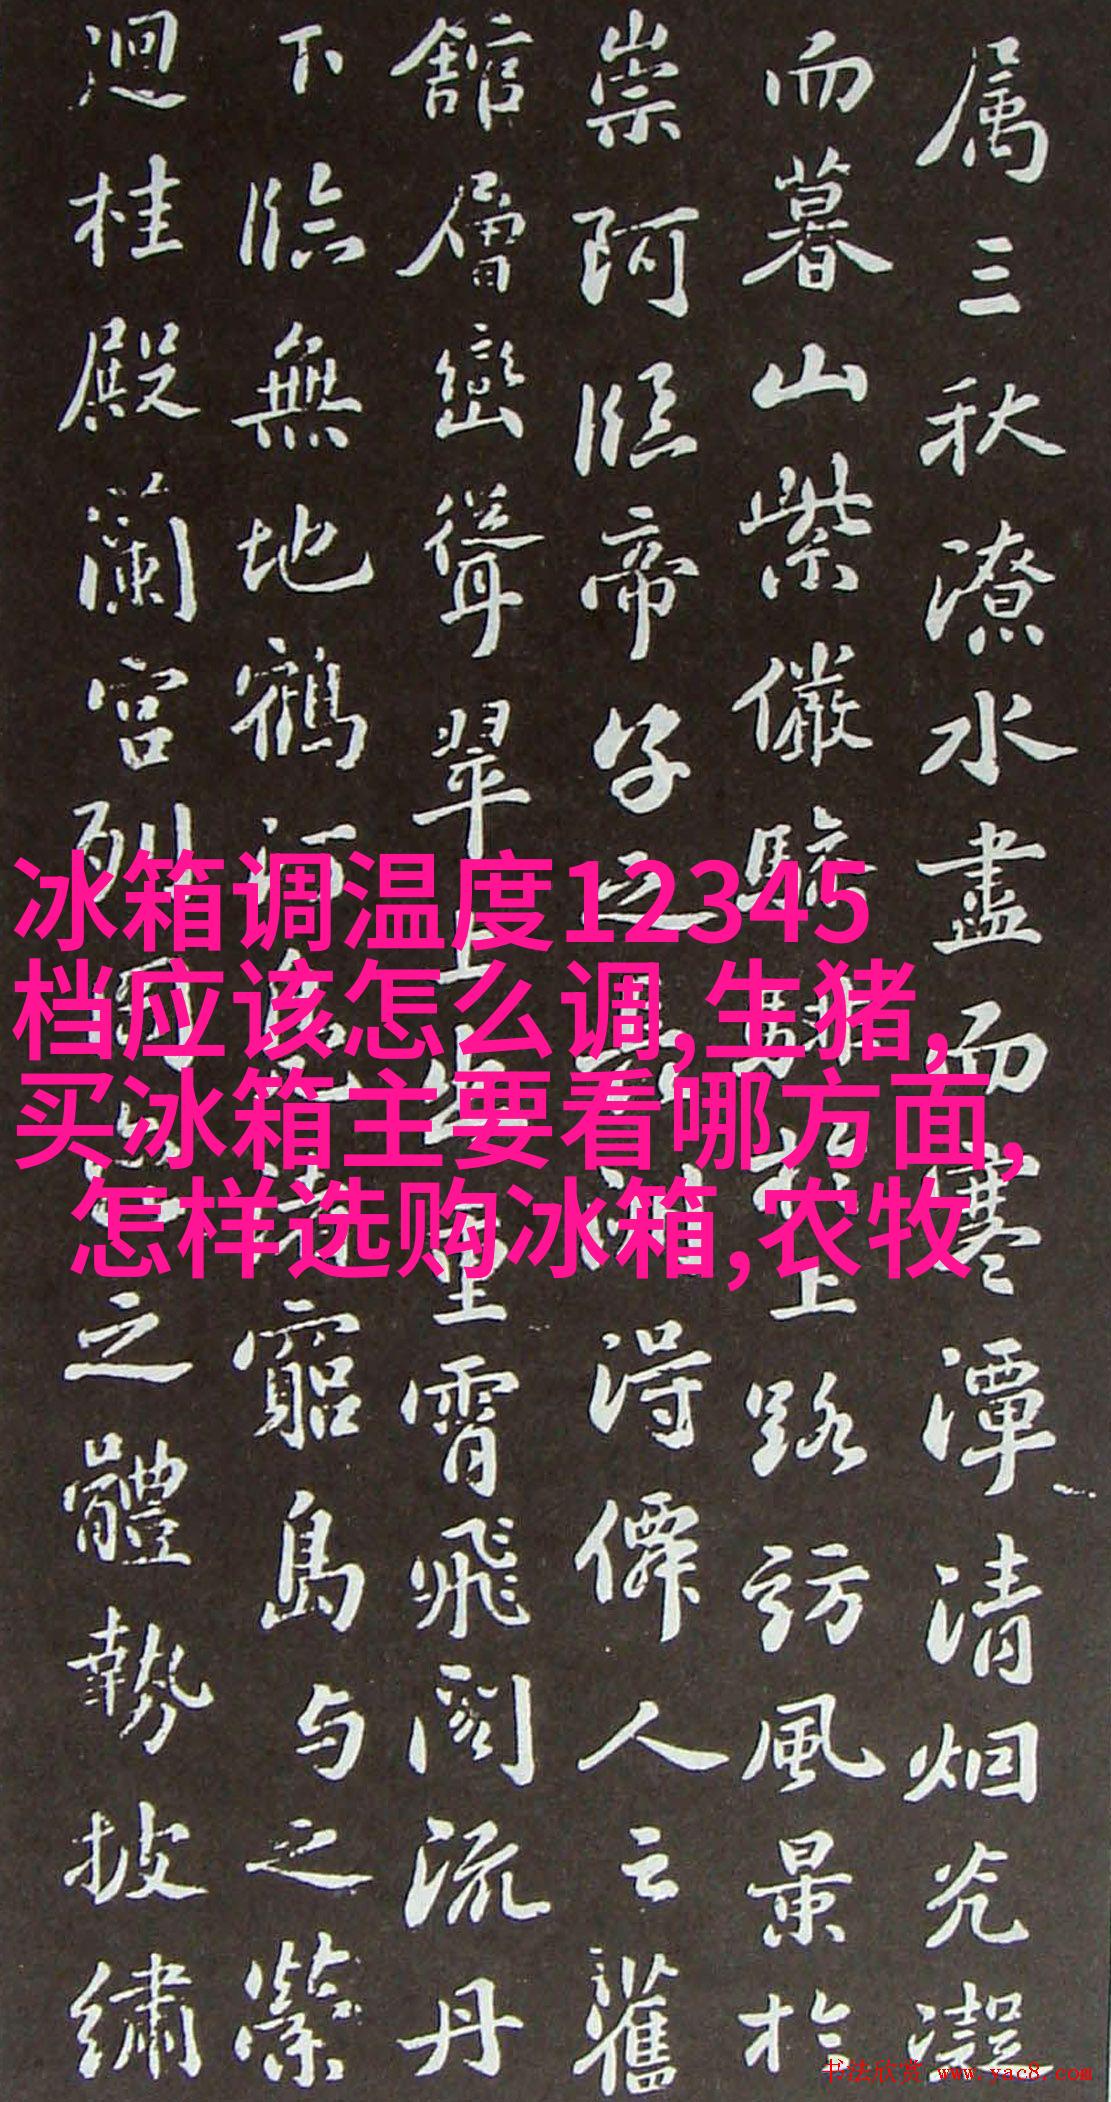 属三秋潦水盡而寒潭清烟光凝
而暮山紫儼驂騑於上路訪風景於
崇阿臨帝子之長洲得僊人之舊
館層巒聳翠上出重霄飛閣流丹
下臨無地鶴汀鳧渚窮島与之縈
迴桂殿蘭宮列岡巒之體勢披繡
冰箱调温度12345
档应该怎么调,生猪,
买冰箱主要看哪方面,
怎样选购冰箱,农牧
书法欣赏 www.yac8.com